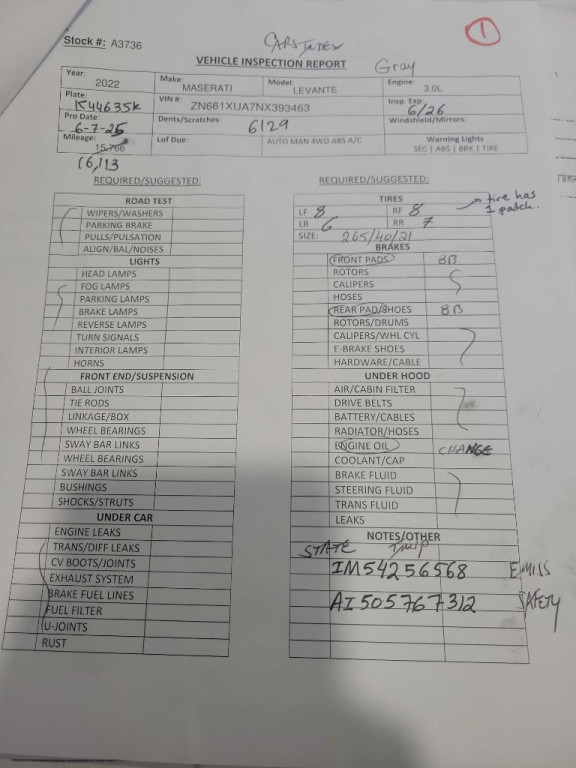 Stock #: A3736
CARS
1
VEHICLE INSPECTION REPORT Gray
Year: 2022 Make: MASERATI Model: LEVANTE Engine: 3.0L
Plate: K44635k VIN #: ZN661XUA7NX393463 Insp. Exp: 6/26
Pro Date: 6-7-25 Dents/Scratches: 6129 Windshield/Mirrors:
Mileage: 15,766 Lof Due: AUTO MAN 4WD ABS A/C Warning Lights
SEC | ABS | BRK | TIRE
16,113
REQUIRED/SUGGESTED:
ROAD TEST
WIPERS/WASHERS
PARKING BRAKE
PULLS/PULSATION
ALIGN/BAL/NOISES
LIGHTS
HEAD LAMPS
FOG LAMPS
PARKING LAMPS
BRAKE LAMPS
REVERSE LAMPS
TURN SIGNALS
INTERIOR LAMPS
HORNS
FRONT END/SUSPENSION
BALL JOINTS
TIE RODS
LINKAGE/BOX
WHEEL BEARINGS
SWAY BAR LINKS
WHEEL BEARINGS
SWAY BAR LINKS
BUSHINGS
SHOCKS/STRUTS
UNDER CAR
ENGINE LEAKS
TRANS/DIFF LEAKS
CV BOOTS/JOINTS
EXHAUST SYSTEM
BRAKE FUEL LINES
FUEL FILTER
U-JOINTS
RUST
REQUIRED/SUGGESTED:
TIRES
LF 8 RF 8 tire has
1 patch.
LR 6 RR 7
SIZE: 265/40/21
BRAKES
FRONT PADS 8B
ROTORS
CALIPERS
HOSES
REAR PAD/SHOES 8B
ROTORS/DRUMS
CALIPERS/WHL CYL
E-BRAKE SHOES
HARDWARE/CABLE
UNDER HOOD
AIR/CABIN FILTER
DRIVE BELTS
BATTERY/CABLES
RADIATOR/HOSES
ENGINE OIL CHANGE
COOLANT/CAP
BRAKE FLUID
STEERING FLUID
TRANS FLUID
LEAKS
NOTES/OTHER
STATE INSP
IM54256568 EMISS
AI505767312 SAFETY